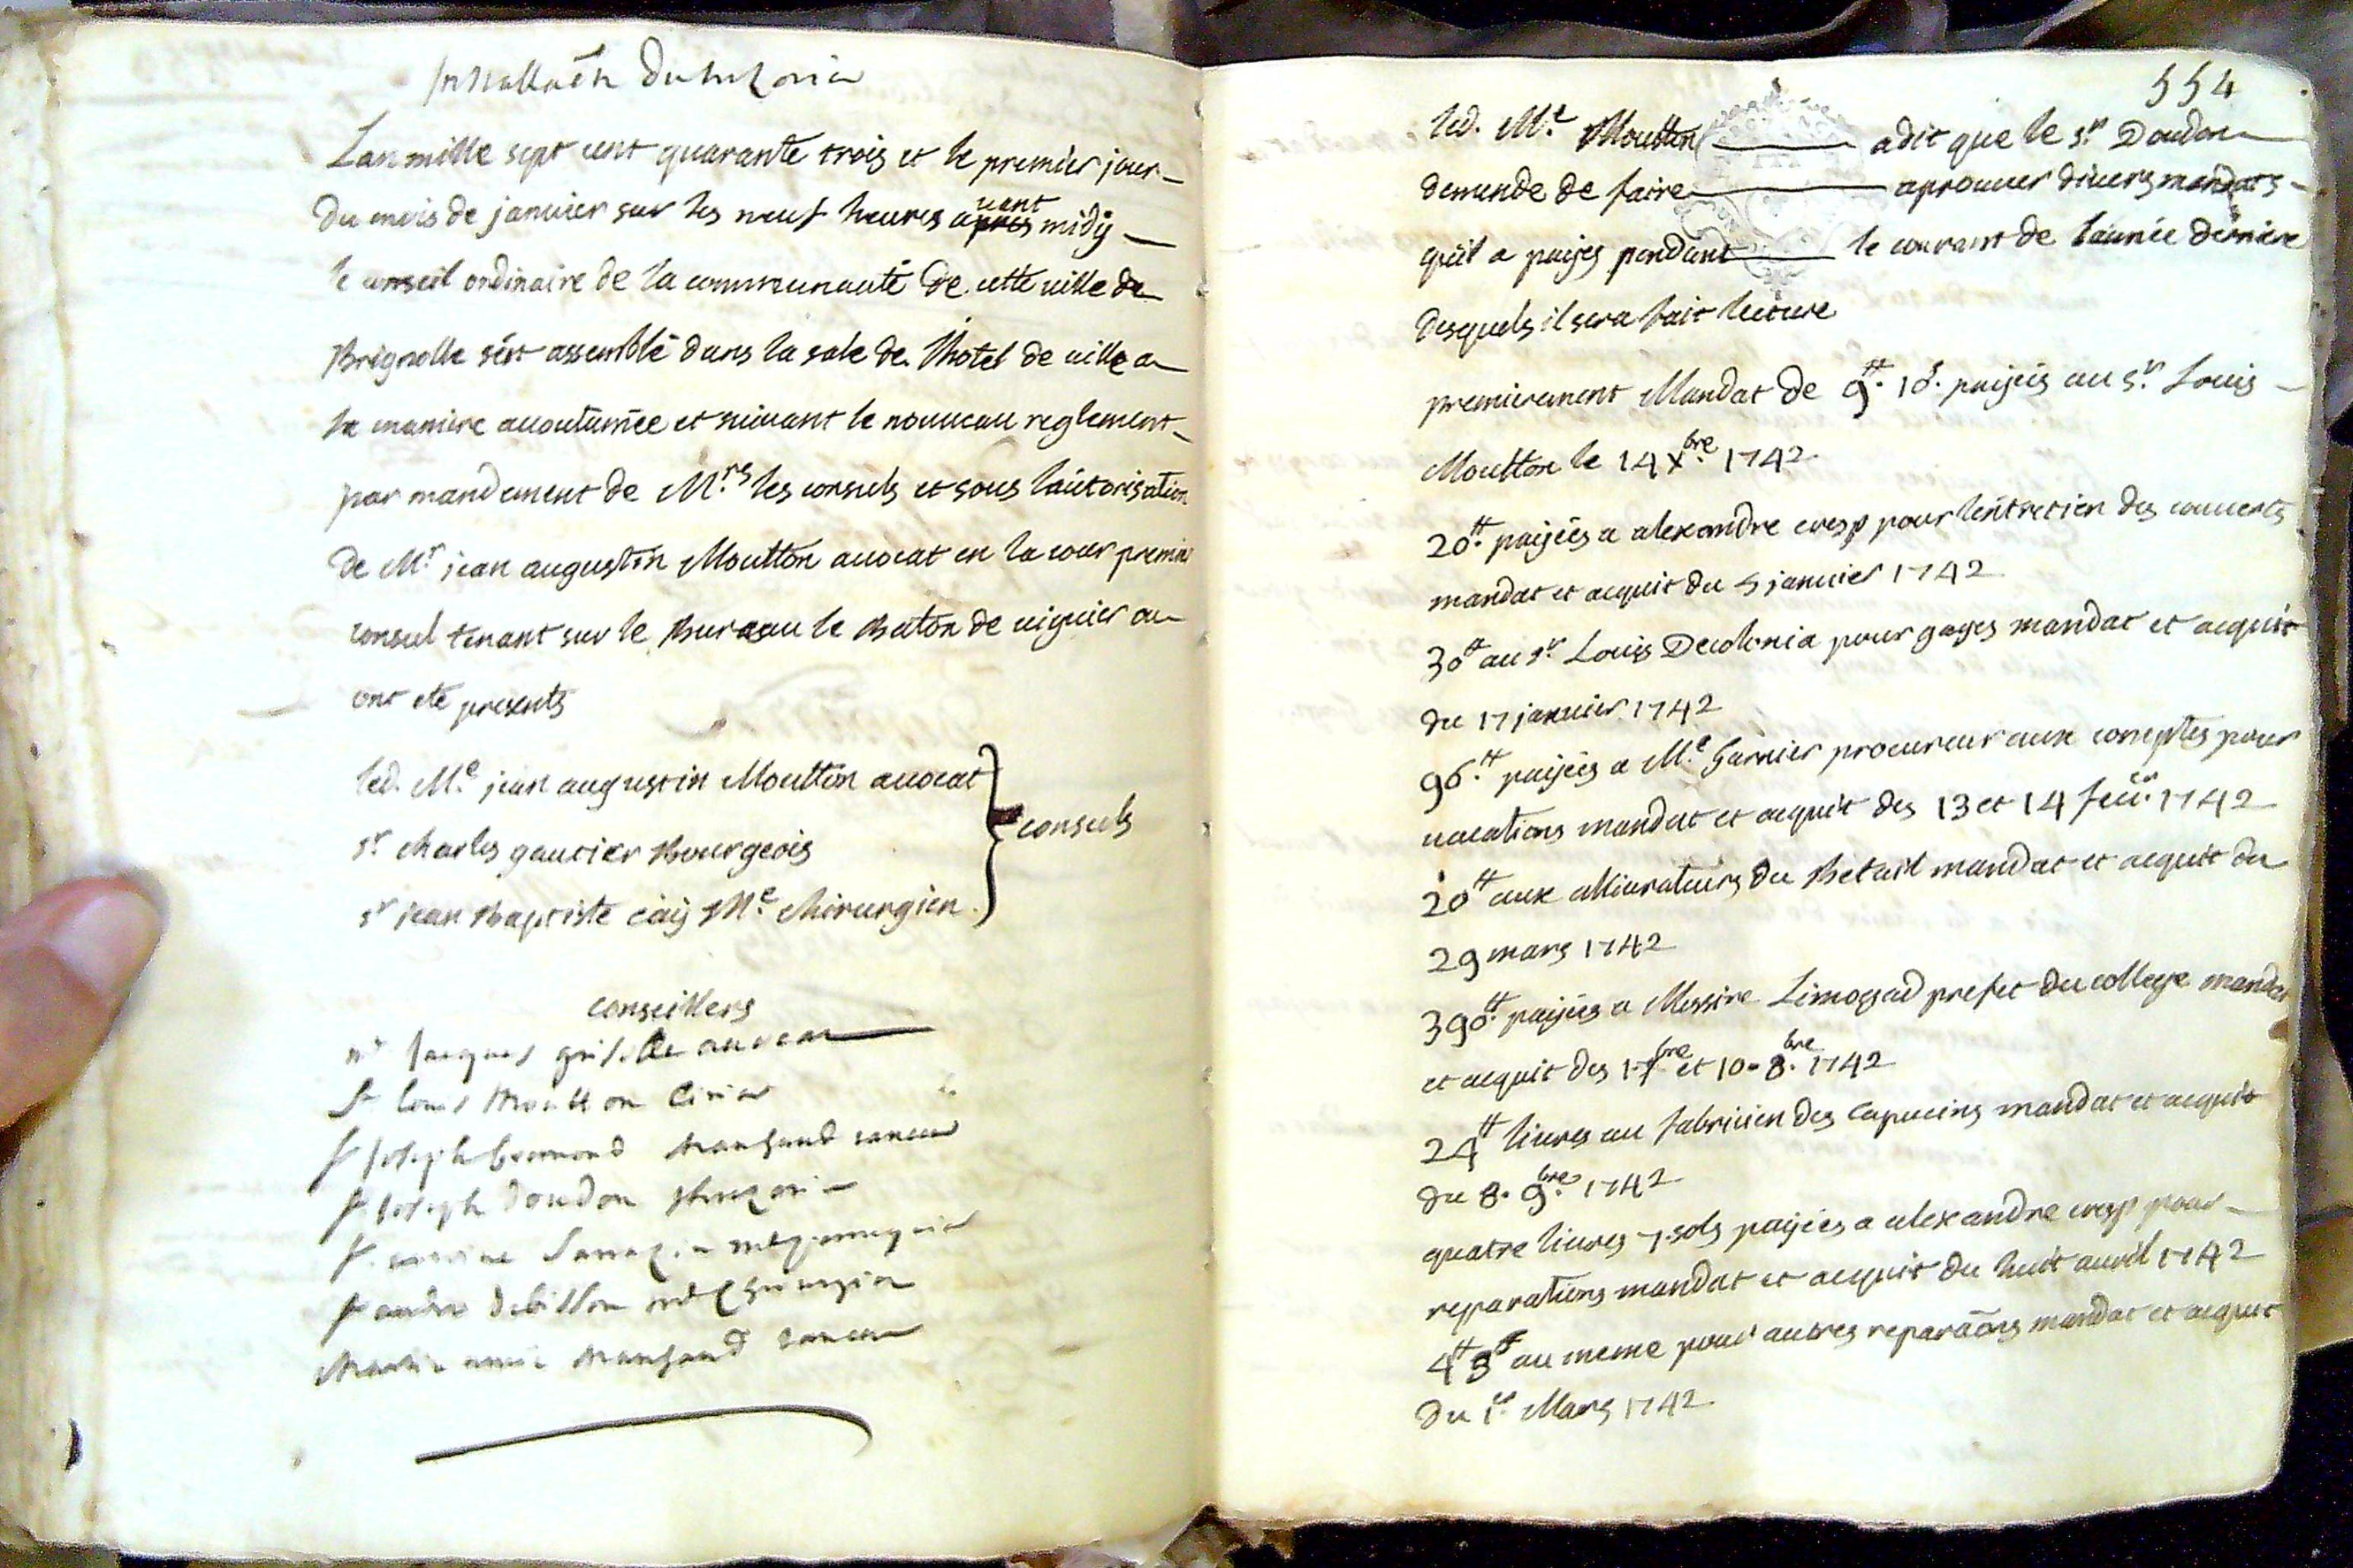 Installaõn du trezorier
Lan mille sept cent quarante trois et le premier jour
du mois de januier sur les neuf heures auant midy
le conseil ordinaire de la communauté de cette uille de
Brignolle s'est assemblé dans la sale de Lhotel de uille a
la maniere acoutumée et suiuant le nouueau reglement
par mandement de M.rs les consuls et sous l'autorisation
de M.r jean augustin Moutton auocat en la cour premier
consul tenant sur le Bureau le Baton de uiguier ou
ont eté presents
led. M.e jean augustin Moutton auocat
sr charles gautier Bourgeois
consuls
sr jean Baptiste M.e chirurgien
conseillers
Jacques auocat
sr Louis Moutton
sr Joseph marchand
sr Joseph Doudon
sr
sr chirurgien
marchand
554
led. M.e Moutton adit que le s.r Doudon
demende de faire aprouuer diuers mandats
qu'il a payés pendant le courant de l'année derniere
desquels il sera fait lecture
premierement Mandat de 9.tt 10.s payées au s.r Louis
Moutton le 14 x.bre 1742
20.tt payées a alexandre cresp pour l'entretien des couuerts
mandat et acquit du 5 januier 1742
30tt au sr Louis Decolonia pour gages mandat et acquit
du 17 januier 1742
96.tt payées a M.e Garnier procureur aux comptes pour
uacations mandat et acquit des 13 et 14 feu.er 1742
20tt aux alliurateurs du Betail mandat et acquit du
29 mars 1742
390.tt payées a Messire prefet du college mandat
et acquit des et 10. 8.bre 1742
24tt liures au fabricien des capucins mandat et acquit
du 8. 9.bre 1742
quatre liures 7. sols payées a alexandre cresp pour
reparations mandat et acquit du huit auril 1742
4tt 3s au meme pour autres reparaõns mandat et acquit
du 1.er Mars 1742